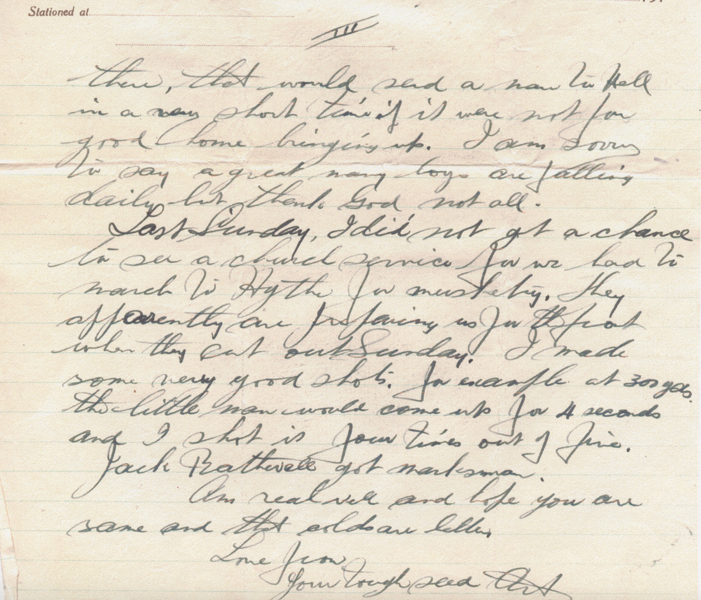 Stationed at
III
there, that would send a man to Hell
in a very short time if it were not for
good home bringing up. I am sorry
to say a great many boys are falling
daily but thank God not all.
Last Sunday, I did not get a chance
to see a church service for we had to
march to Hythe for musketry. They
apparently are preparing us for the front
when they cut out Sunday. I made
some very good shots. for example at 300 yds.
the little man would come up for 4 seconds
and I shot it four times out of five.
Jack Rathwell got marksman.
Am real well and hope you are
same and that colds are better
Love from
Your tough seed Art